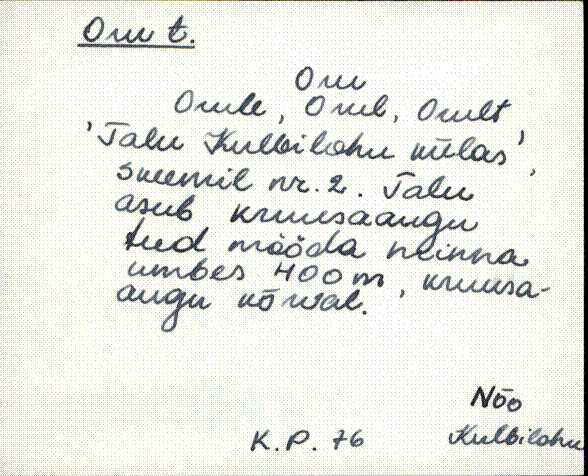 Oru t.
Oru
Orule, Orul, Orult
'Talu Kulbilohu külas',
skeemil nr. 2. Talu
asub kruusaaugu
teed mööda minna
umbes 400 m, kruusa-
augu kõrval.
Nõo
K.P. 76 Kulbilohu